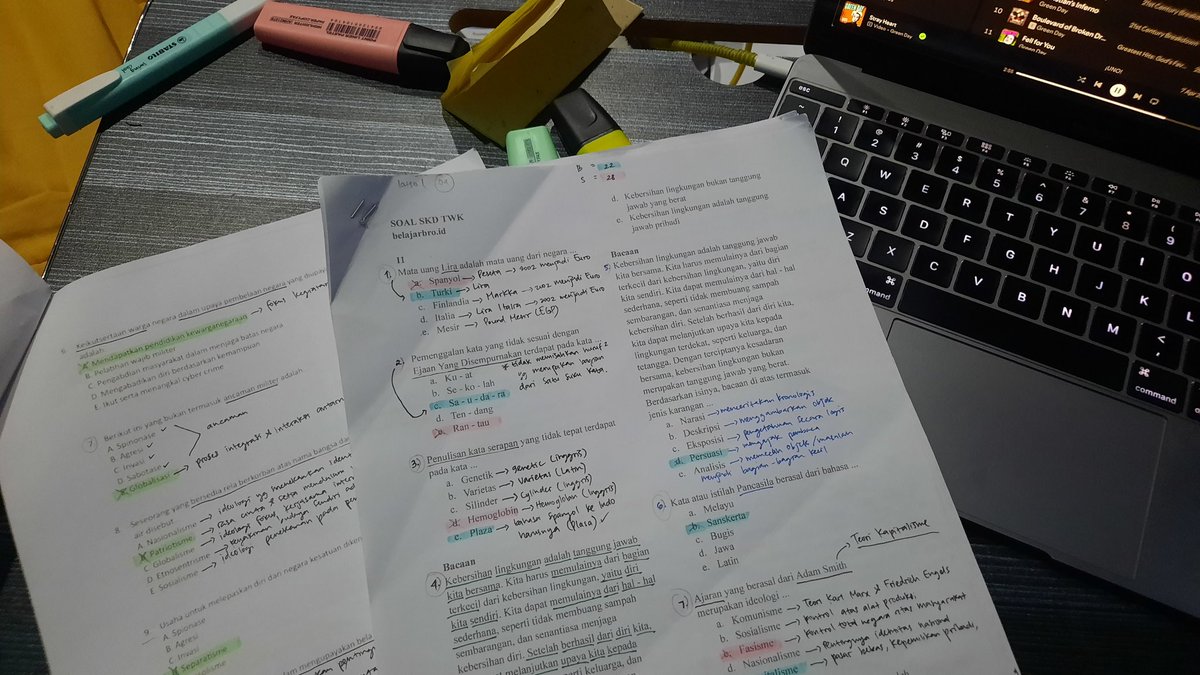 STABILO
B = 22
S = 28
SOAL SKD TWK
belajarbro.id
II
1. Mata uang Lira adalah mata uang dari negara ...
a. Spanyol → Peseta → 2002 menjadi Euro
b. Turki → Lira
c. Finlandia → Markka → 2002 menjadi Euro
d. Italia → Lira Italia → 2002 menjadi Euro
e. Mesir → Pound Mesir (EGP)
2. Pemenggalan kata yang tidak sesuai dengan
Ejaan Yang Disempurnakan terdapat pada kata ...
a. Ku - at
b. Se - ko - lah
c. Sa - u - da - ra
d. Ten - dang
e. Ran - tau
* tidak memisahkan huruf 2
yg merupakan
dari satu suku kata.
3. Penulisan kata serapan yang tidak tepat terdapat
pada kata ...
a. Genetik → Genetic (Inggris)
b. Varietas → Varietas (Latin)
c. Silinder → Cylinder (Inggris)
d. Hemoglobin → Hemoglobin (Inggris)
e. Plaza → bahasa Spanyol ke Indo
harusnya (Plasa) ✓
Bacaan
4. Kebersihan lingkungan adalah tanggung jawab
kita bersama. Kita harus memulainya dari bagian
terkecil dari kebersihan lingkungan, yaitu diri
kita sendiri. Kita dapat memulainya dari hal - hal
sederhana, seperti tidak membuang sampah
sembarangan, dan senantiasa menjaga
kebersihan diri. Setelah berhasil dari diri kita,
melanjutkan upaya kita kepada
seperti keluarga, dan
d. Kebersihan lingkungan bukan tanggung
jawab yang berat
e. Kebersihan lingkungan adalah tanggung
jawab pribadi
Bacaan
5. Kebersihan lingkungan adalah tanggung jawab
kita bersama. Kita harus memulainya dari bagian
terkecil dari kebersihan lingkungan, yaitu diri
kita sendiri. Kita dapat memulainya dari hal - hal
sederhana, seperti tidak membuang sampah
sembarangan, dan senantiasa menjaga
kebersihan diri. Setelah berhasil dari diri kita,
kita dapat melanjutkan upaya kita kepada
lingkungan terdekat, seperti keluarga, dan
tetangga. Dengan terciptanya kesadaran
bersama, kebersihan lingkungan bukan
merupakan tanggung jawab yang berat
Berdasarkan isinya, bacaan di atas termasuk
jenis karangan ...
a. Narasi → menceritakan kronologis
b. Deskripsi → menggambarkan objek
c. Eksposisi → pengetahuan secara logis
d. Persuasi → mengajak pembaca
e. Analisis → memecah objek / masalah
menjadi bagian-bagian kecil
6. Kata atau istilah Pancasila berasal dari bahasa ...
a. Melayu
b. Sanskerta
c. Bugis
d. Jawa
e. Latin
Teori Kapitalisme
7. Ajaran yang berasal dari Adam Smith
merupakan ideologi ...
a. Komunisme → Teori Karl Marx & Friedrich Engels
b. Sosialisme → kontrol atas alat produksi
c. Fasisme → kontrol total negara atas masyarakat
d. Nasionalisme → Pentingnya identitas nasional
→ pasar bebas, kepemilikan pribadi,
Keikutsertaan warga negara dalam upaya pembelaan negara yang
adalah
A Mendapatkan pendidikan kewarganegaraan → fokus
B Pelatihan wajib militer
C Pengabdian masyarakat dalam menjaga batas negara
D Mengabdikan diri berdasarkan kemampuan
E Ikut serta menangkal cyber crime
7 Berikut ini yang bukan termasuk ancaman militer adalah
A Spionase ✓
B Agresi ✓
C Invasi ✓
D Sabotase ✓
ancaman
E Globalisasi → proses integrasi & interaksi antar
8. Seseorang yang bersedia rela berkorban atas nama bangsa dan
air disebut
A Nasionalisme → ideologi yg menekankan
B Patriotisme → rasa cinta & setia
C Globalisme → ideologi fokus kerjasama
D Etnosentrisme → keyakinan budaya sendiri
E Sosialisme → ideologi penekanan pada
9. Usaha untuk melepaskan diri dari negara kesatuan
A Spionase
B Agresi
C Invasi
Separatisme
Stray Heart
Video • Green Day
10
Boulevard of Broken Dr...
Green Day
11
Fell for You
Green Day
21st Century Breakdown
Greatest Hits: God's Fav...
¡UNO!
2:55
esc
F1
F2
F3
F4
F5
F6
F7
F8
~
! 1
@ 2
# 3
$ 4
% 5
^ 6
& 7
* 8
( 9
Q W E R T Y U I
A S D F G H J K
Z X C V B N M
< ,
command
⌘
⌘
command